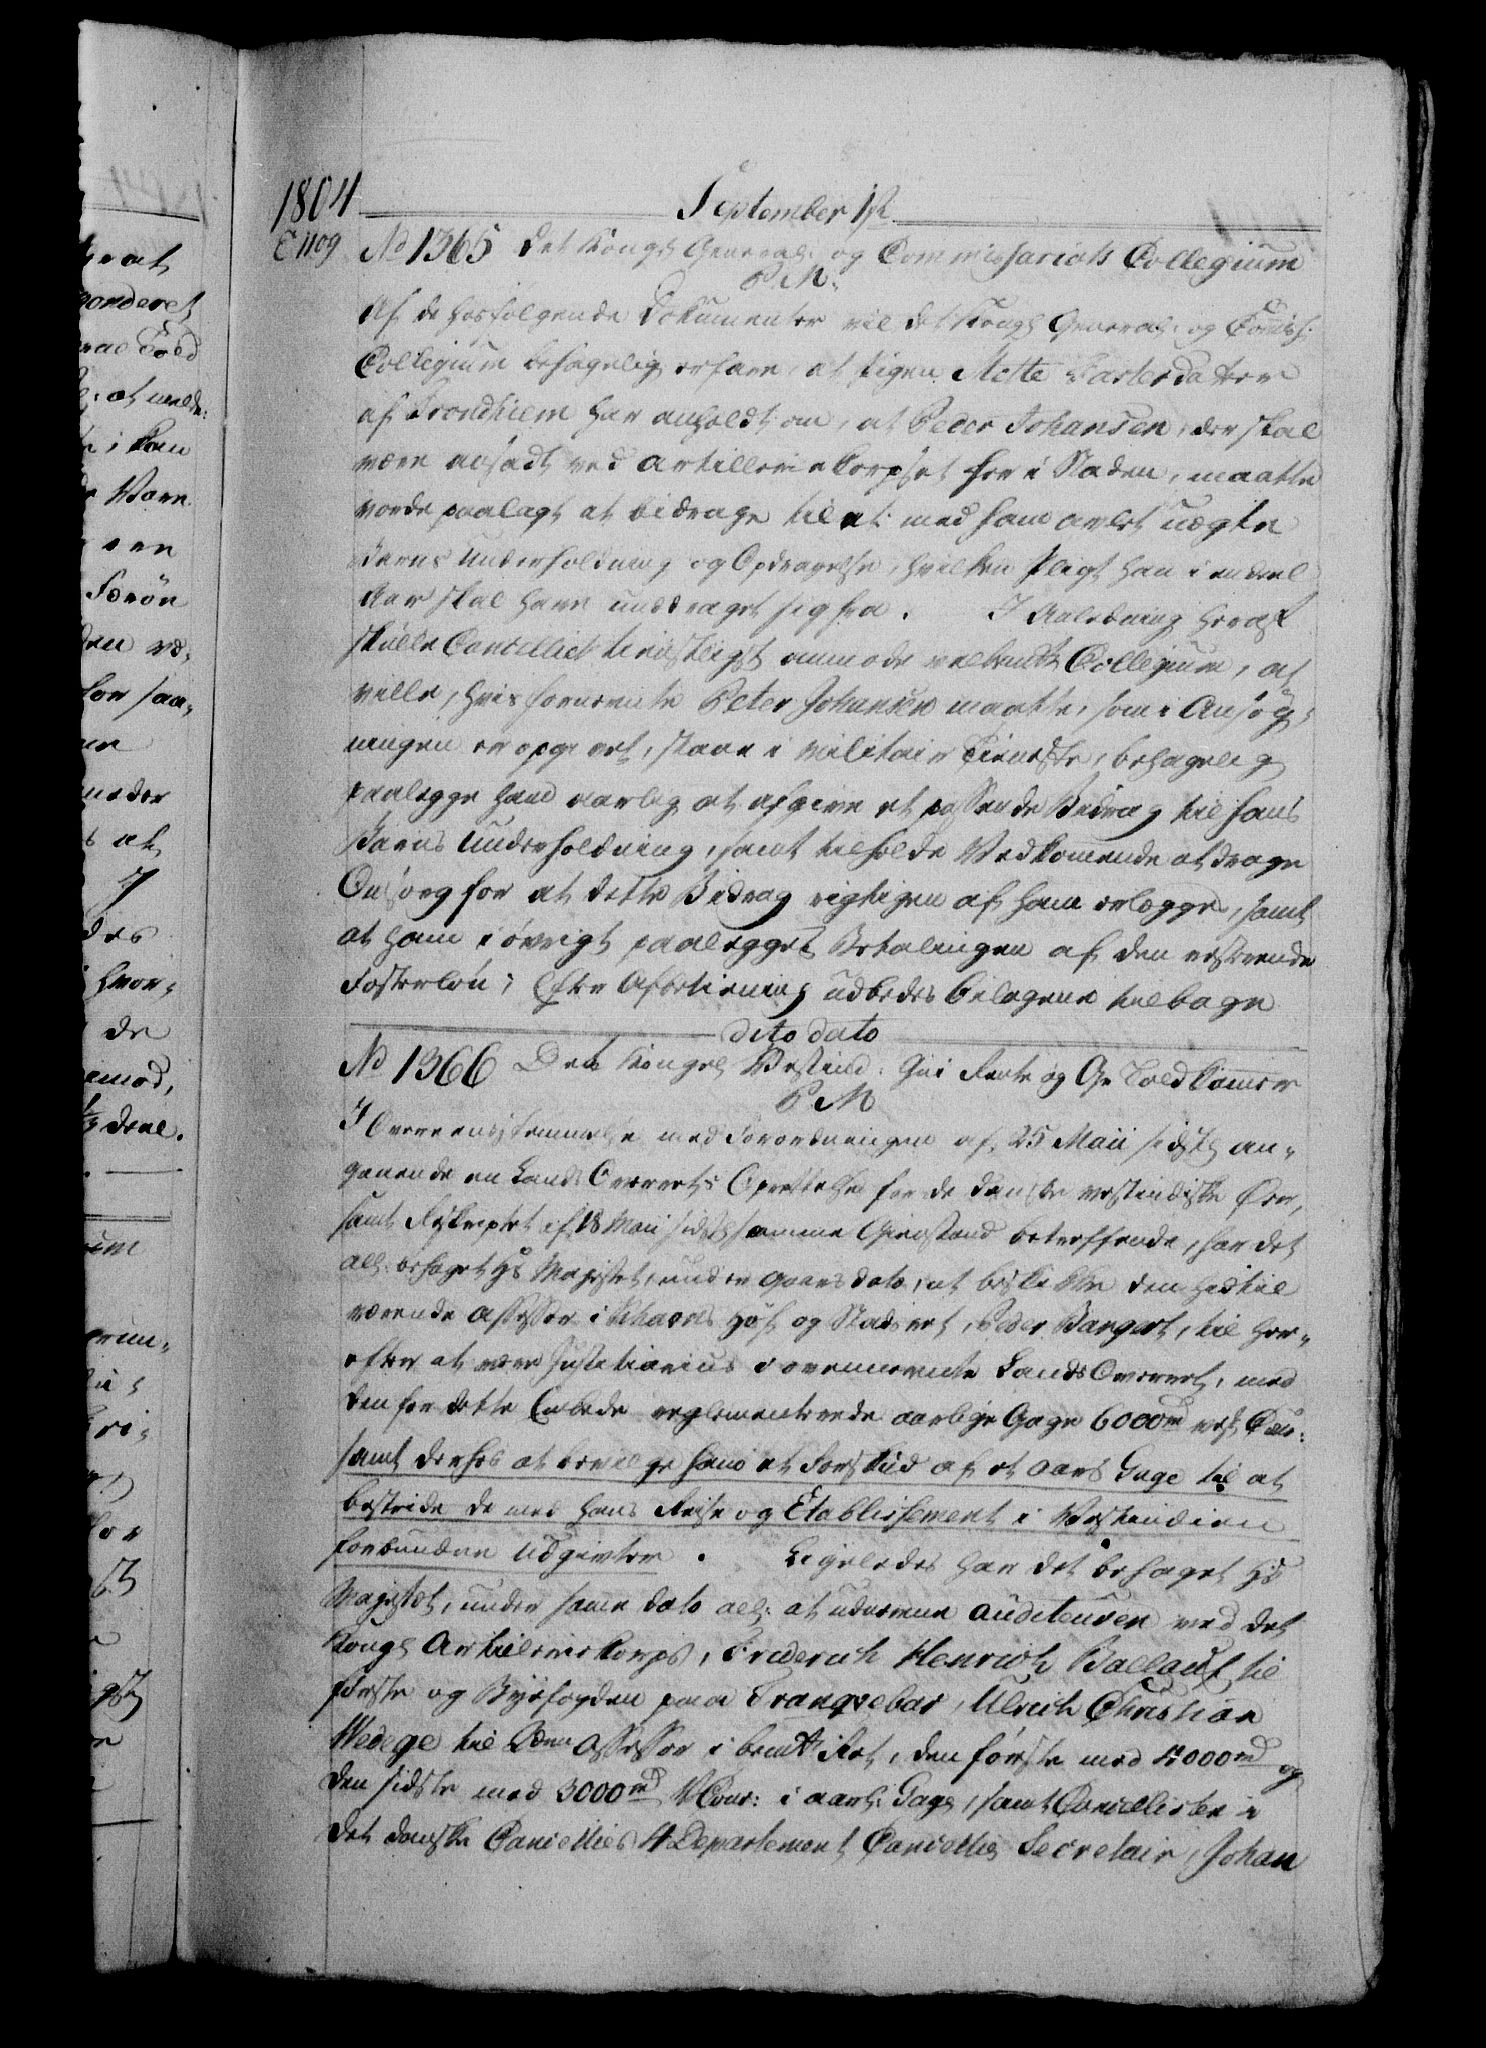 1804
September 1ste
E 1109
No 1365 Det Kongel General- og Commissariats Collegium
P. M:
Af de hosfølgende Dokumenter vil det Kongl General- og Comiss:
Collegium behagelig erfare, at Pigen Mette Larsdatter
af Trondhiem har anholdt om, at Peder Johansen, der skal
være ansadt ved Artilleriekorpset her i Staden, maatte
vorde paalagt at bidrage til et med ham avlet uægte
Barns Underholdning og Opdragelse, hvilken Pligt han i endeel
Aar skal have unddraget sig fra. I Anledning heraf
skulle Cancelliet tienstligst anmode velbemte Collegium, at
ville, hvis fornævnte Peter Johansen maatte, som i Ansøg-
ningen er opgivet, staae i militair Tieneste, behagelig
paalegge ham aarlig at afgive et passende Bidrag til hans
Barns Underholdning, samt tilholde Vedkomende at drage
Omsorg for at dette Bidrag rigtigen af ham erlægges, samt
at ham i øvrigt paalegges Betalingen af den resterende
Fosterløn; Efter Afbetiening udbedes Bilagene tilbage
dito dato
No 1366 Det Kongel Vestind: Gui Rente og Ge Toldkamer
P. M
I Overeensstemmelse med Forordningen af 25 Maii sidstl an-
gaaende en Lands Overrets Oprettelse for de danske vestindiske Øer,
samt Rescriptet af 18 Maii sidstl samme Gienstand betreffende, har det
all: behaget Hs Majestet, under Gaars dato, at beskikke den hidtil
værende Assessor i Kiøbhavns Hof og Stadsret, Peder Bangert, til her-
efter at være Justitiarius i ovennævnte Lands Overret, med
den for dette Embede reglementerede aarlige Gage 6000 rd vest. Cour:
samt derhos at bevilge ham et Forskud af et Aars Gage til at
bestride de med hans Reise og Etablissement i Vestindien
forbundne Udgivter. Ligeledes har det behaget Hs
Majestæt, under samme dato all: at udnævne Auditeuren ved det
Kongl Artilleriekorps, Friderich Henrich Ballauf til
første og Byefogden paa Tranqvebar, Ulrich Christian
Wedege til 2den Assessor i bemte Ret, den første med 4000 rd og
den sidste med 3000 rd V Cour: i aarl: Gage, samt Cancellisten i
det danske Cancellies 4 Departement Cancellie Secretair, Johan